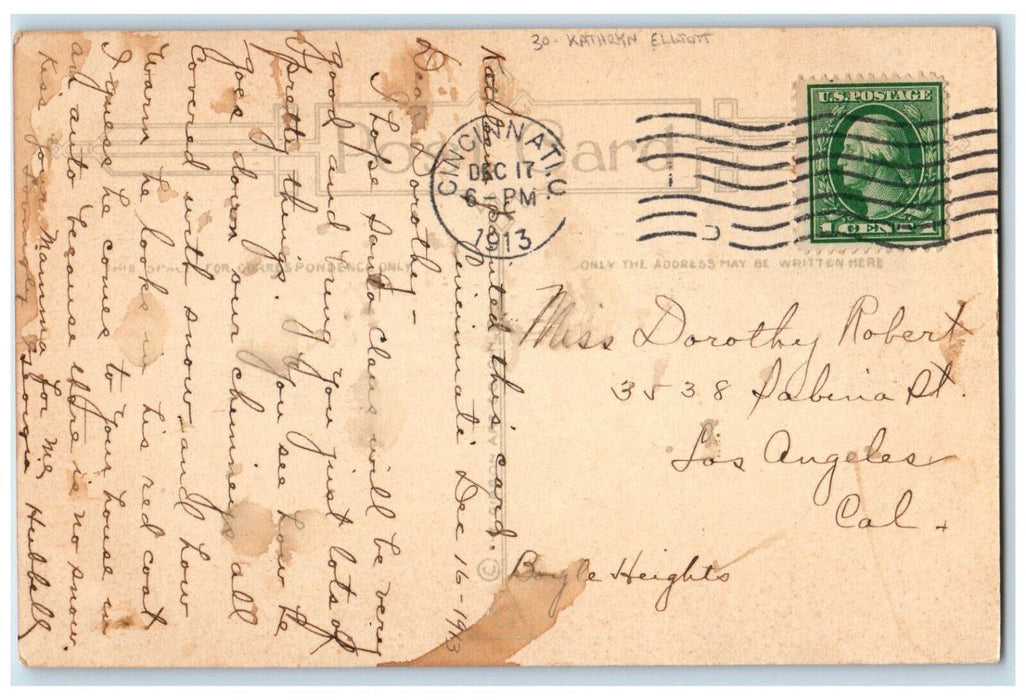 30 - KATHRYN ELLIOTT
Post Card
U.S. POSTAGE
1 CENT 1
CINCINNATI, O.
DEC 17
6 - PM
1913
THIS SPACE FOR CORRESPONDENCE ONLY
ONLY THE ADDRESS MAY BE WRITTEN HERE
Kathleen painted this card.
Cincinnati Dec 16 - 1913
Dear Dorothy -
I hope Santa claus will be very
good and bring you just lots of
pretty things. If you see how he
goes down your chimney all
covered with snow, and how
warm he looks in his red coat
I guess he comes to your house in
an auto because there is no snow.
Kiss your Mamma for me
Lovingly Hubbell
Miss Dorothy Robert
3538 Sabina St.
Los Angeles
Cal.
Boyle Heights
©